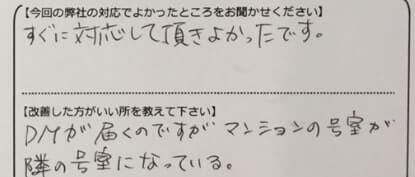 【今回の弊社の対応でよかったところをお聞かせください】
すぐに対応して頂きよかったです。
【改善した方がいい所を教えて下さい】
DMが届くのですがマンションの号室が
隣の号室になっている。